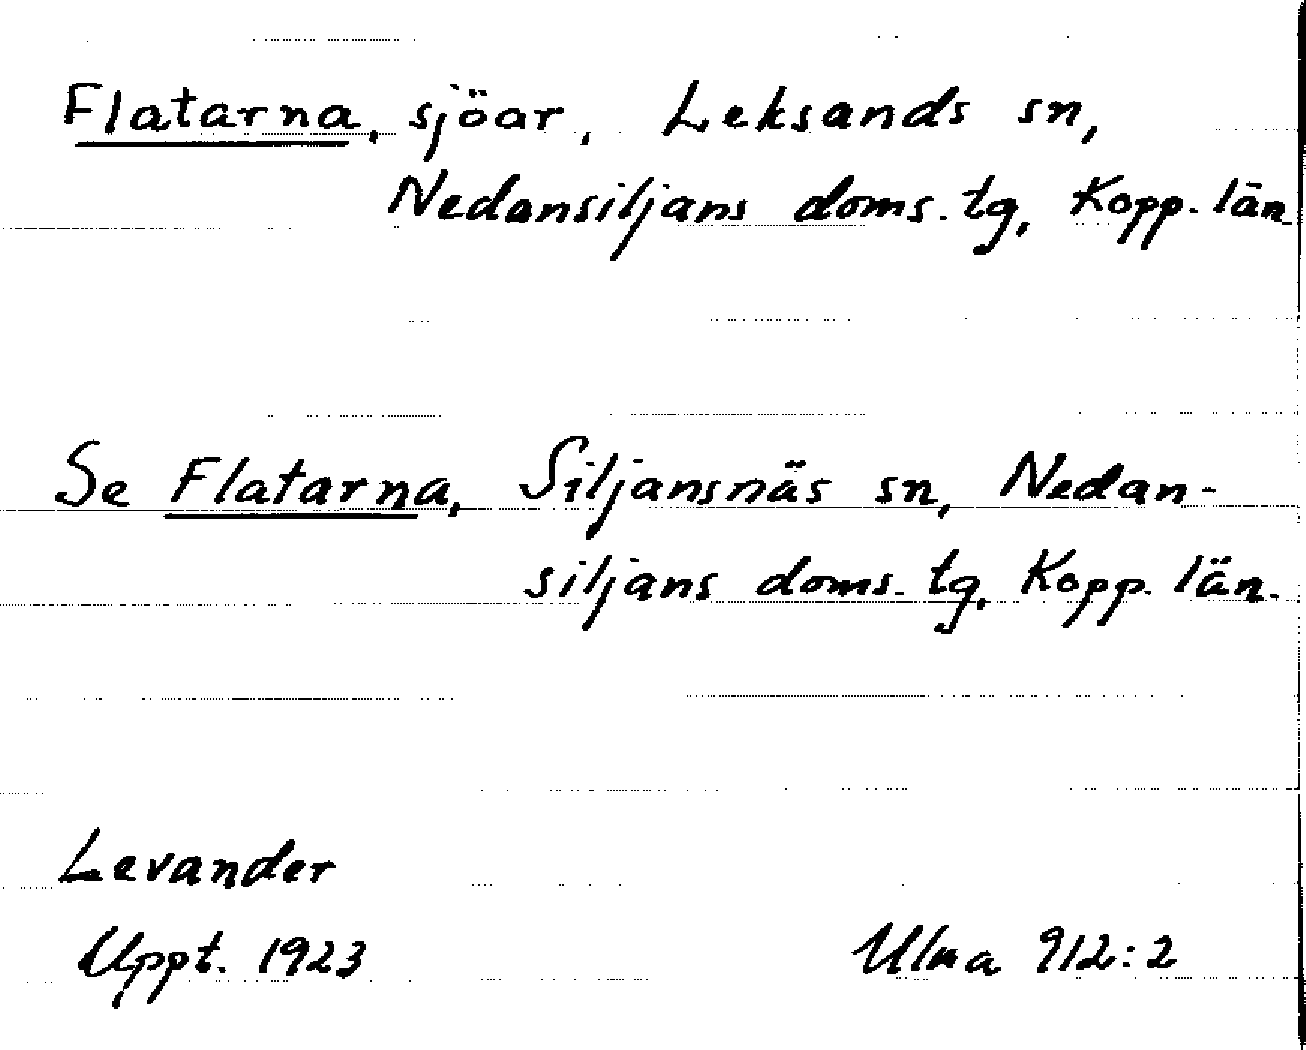 Flatarna, sjöar, Leksands sn,
Nedansiljans doms. tg, Kopp. län
Se Flatarna, Siljansnäs sn, Nedan-
siljans doms. tg, Kopp. län.
Levander
Uppt. 1923 Ulma 912:2